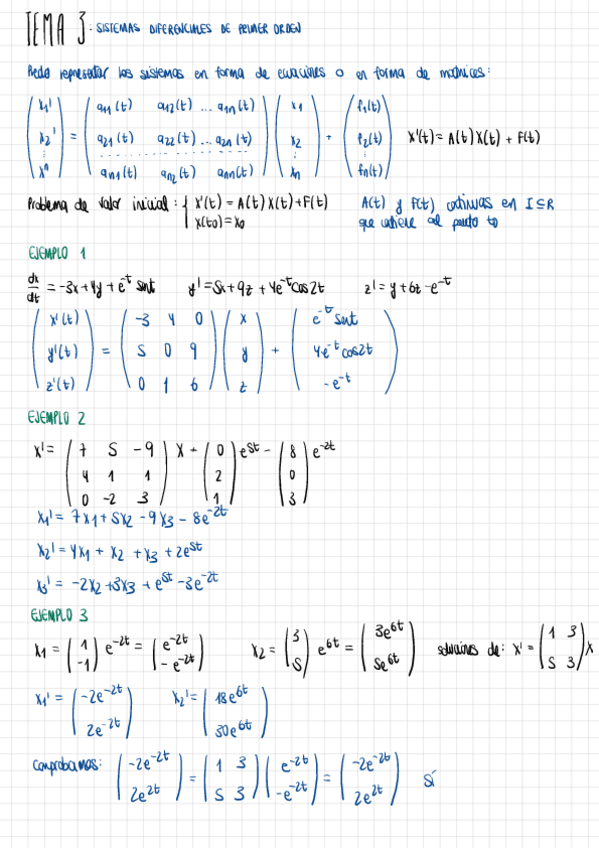 TEMA 3: SISTEMAS DIFERENCIALES DE PRIMER ORDEN
Puedo representar los sistemas en forma de ecuaciones o en forma de matrices:
(x1' ; x2' ; ⋮ ; x^n) = (a11(t) a12(t) ... a1n(t) ; a21(t) a22(t) ... a2n(t) ; ............ ; an1(t) an2(t) ann(t)) (x1 ; x2 ; ⋮ ; xn) + (f1(t) ; f2(t) ; ⋮ ; fn(t)) X'(t) = A(t) X(t) + F(t)
Problema de valor inicial: { X'(t) = A(t) X(t) + F(t) A(t) y F(t) continuas en I ⊆ R
X(t0) = X0 que contiene al punto t0
EJEMPLO 1
dx/dt = -3x + 4y + e^-t sent y' = 5x + 9z + 4e^-t cos2t z' = y + 6z - e^-t
(x'(t) ; y'(t) ; z'(t)) = (-3 4 0 ; 5 0 9 ; 0 1 6) (x ; y ; z) + (e^-t sent ; 4e^-t cos2t ; -e^-t)
EJEMPLO 2
X' = (7 5 -9 ; 4 1 1 ; 0 -2 3) X + (0 ; 2 ; 1) e^5t - (8 ; 0 ; 3) e^-2t
x1' = 7x1 + 5x2 - 9x3 - 8e^-2t
x2' = 4x1 + x2 + x3 + 2e^5t
x3' = -2x2 + 3x3 + e^5t - 3e^-2t
EJEMPLO 3
X1 = (1 ; -1) e^-2t = (e^-2t ; -e^-2t) X2 = (3 ; 5) e^6t = (3e^6t ; 5e^6t) soluciones de: X' = (1 3 ; 5 3) X
X1' = (-2e^-2t ; 2e^-2t) X2' = (18e^6t ; 30e^6t)
Comprobamos: (-2e^-2t ; 2e^2t) = (1 3 ; 5 3) (e^-2t ; -e^-2t) = (-2e^-2t ; 2e^2t) Sí